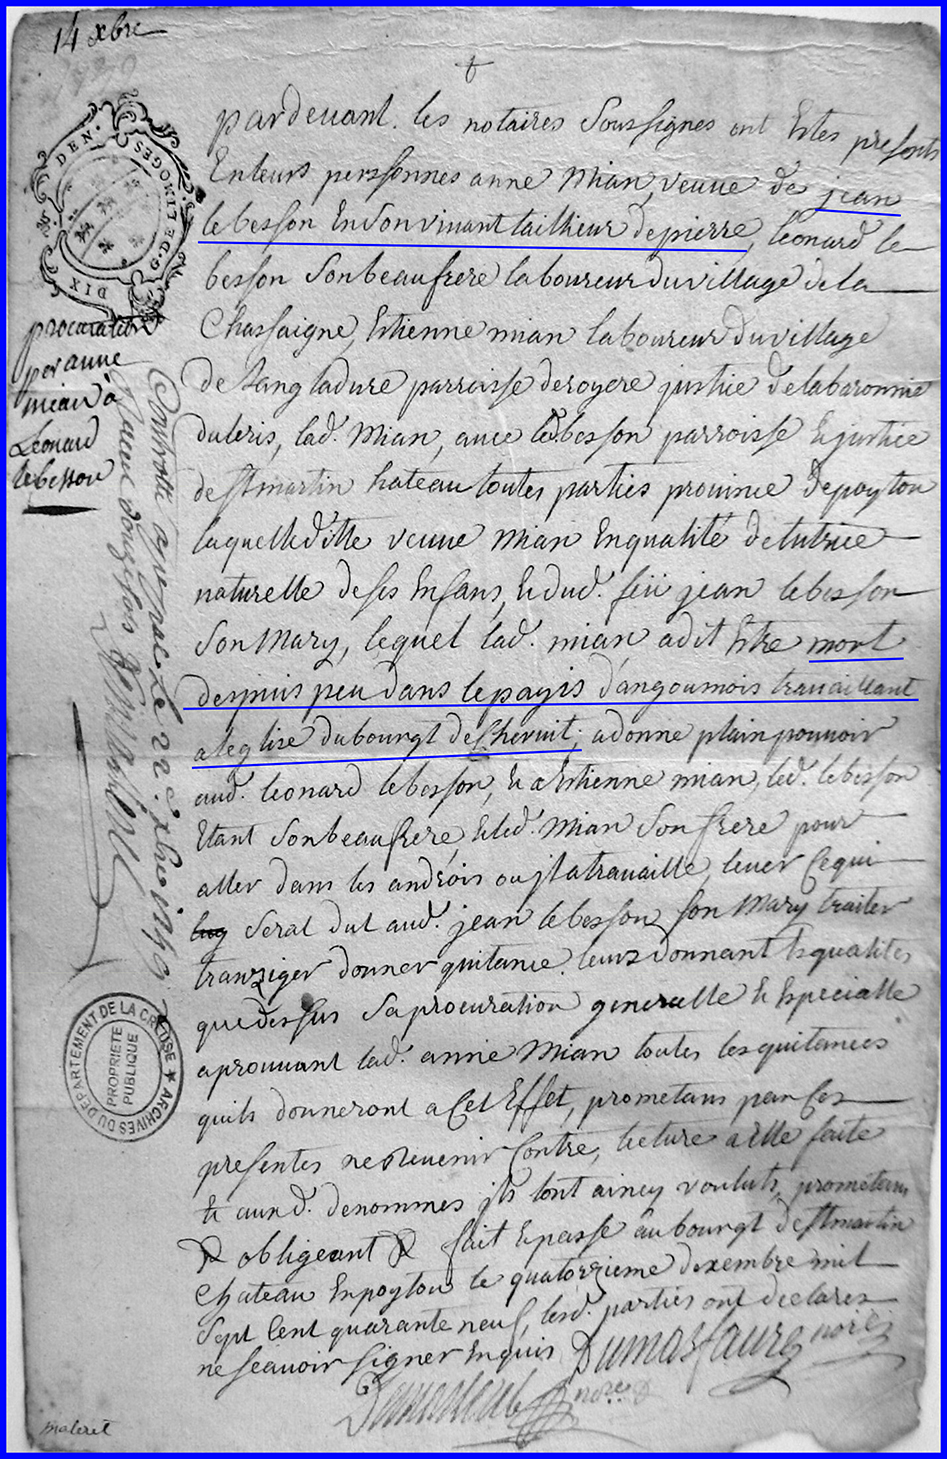 14 xbre
pardevant les notaires Soussignes ont Estes presents
En leurs personnes anne Mian, veuve de jean
lebesson En son vivant tailhieur de pierre, leonard le
besson Son beaufrere laboureur du village de la
Chassaigne, Estienne mian laboureur du village
de Langladure parroisse de royere justice de la baronnie
du leris, lad. Mian, avec led. besson parroisse & justice
de St martin hateau toutes parties province de poytou
laquelle ditte veuve Mian En qualité de tutrice
naturelle de ses Enfans, & dud. feü jean lebesson
Son Mary, lequel lad. mian a dit Estre mort
despuis peu dans le payis d'angoumois travaillant
a leglise du bourgt de Chenuit, a donne plain pouvoir
aud. leonard lebesson, & a Estienne mian, led. lebesson
Etant Son beaufrere, & led. Mian Son frere pour
aller dans les androis ou jl a travaille, lever Ce qui
Serat dut aud. jean lebesson son Mary traiter
tranziger donner quitance. leurs donnant les qualites
que dessus Sa procuration generalle & Especialle
aprouvant lad. anne Mian toutes les quitances
quils donneront a Cet Effet, prometans par Ces
presentes ne Revenir Contre, lecture a Elle faite
& aux d. denommes jls lont aincy voulut, prometans
& obligeant & fait & passe au bourgt de St martin
Chateau En poytou le quatorzieme dexembre mil
Sept Cent quarante neuf, lesd. parties ont declares
ne scavoir signer Enquis Dumasfaure nore
nore
DEN.
G. DE LIMOGES
DIX
procuration
par anne
mian a
Leonard
lebesson
Controllé a royere le 22 xbre 1749
Recu douze sols
ARCHIVES DU DEPARTEMENT DE LA CREUSE
PROPRIETE
PUBLIQUE
Maleret